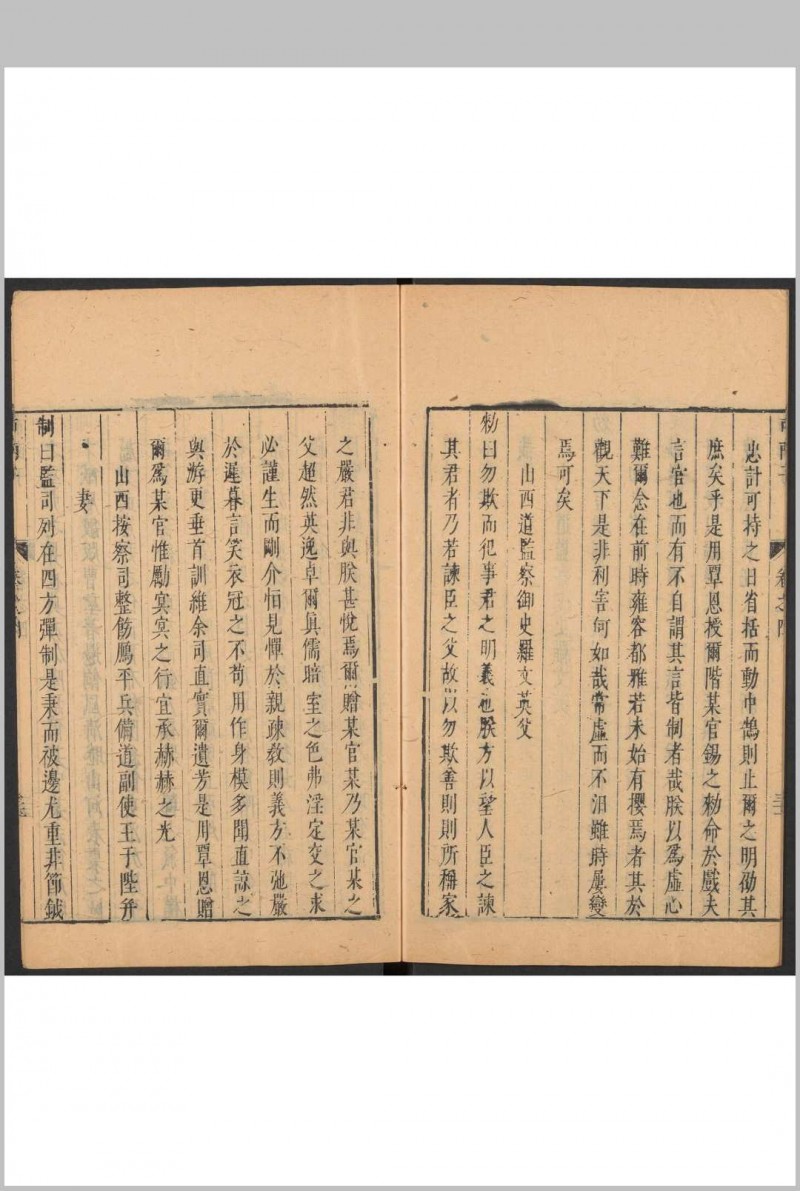 忠計可持之日省括而動中鵠則止爾之明勖其
庶矣乎是用覃恩授爾階某官錫之勑命於戲夫
言官也而有不自謂其言皆制者哉朕以爲虛心
難爾念在前時雍容都雅若未始有攖焉者其於
觀天下是非利害何如哉常虛而不汨雖時屢變
焉可矣
山西道監察御史羅文英父
勑曰勿欺而犯事君之明義也朕方以望人臣之諫
其君者乃若諫臣之父故以勿欺善則則所稱家
之嚴君非與朕甚悅焉爾贈某官某乃某官某之
父超然英逸卓爾眞儒暗室之色弗淫定交之求
必謹生而剛介恒見憚於親疎敎則義方不弛嚴
於遲暮言笑衣冠之不苟用作身模多聞直諒之
與游更垂首訓維余司直實爾遺芳是用覃恩贈
爾爲某官惟勵冥冥之行宜承赫赫之光
山西按察司整飭鴈平兵備道副使王于陛幷
妻
制曰監司列在四方彈制是秉而被邊尤重非節鉞